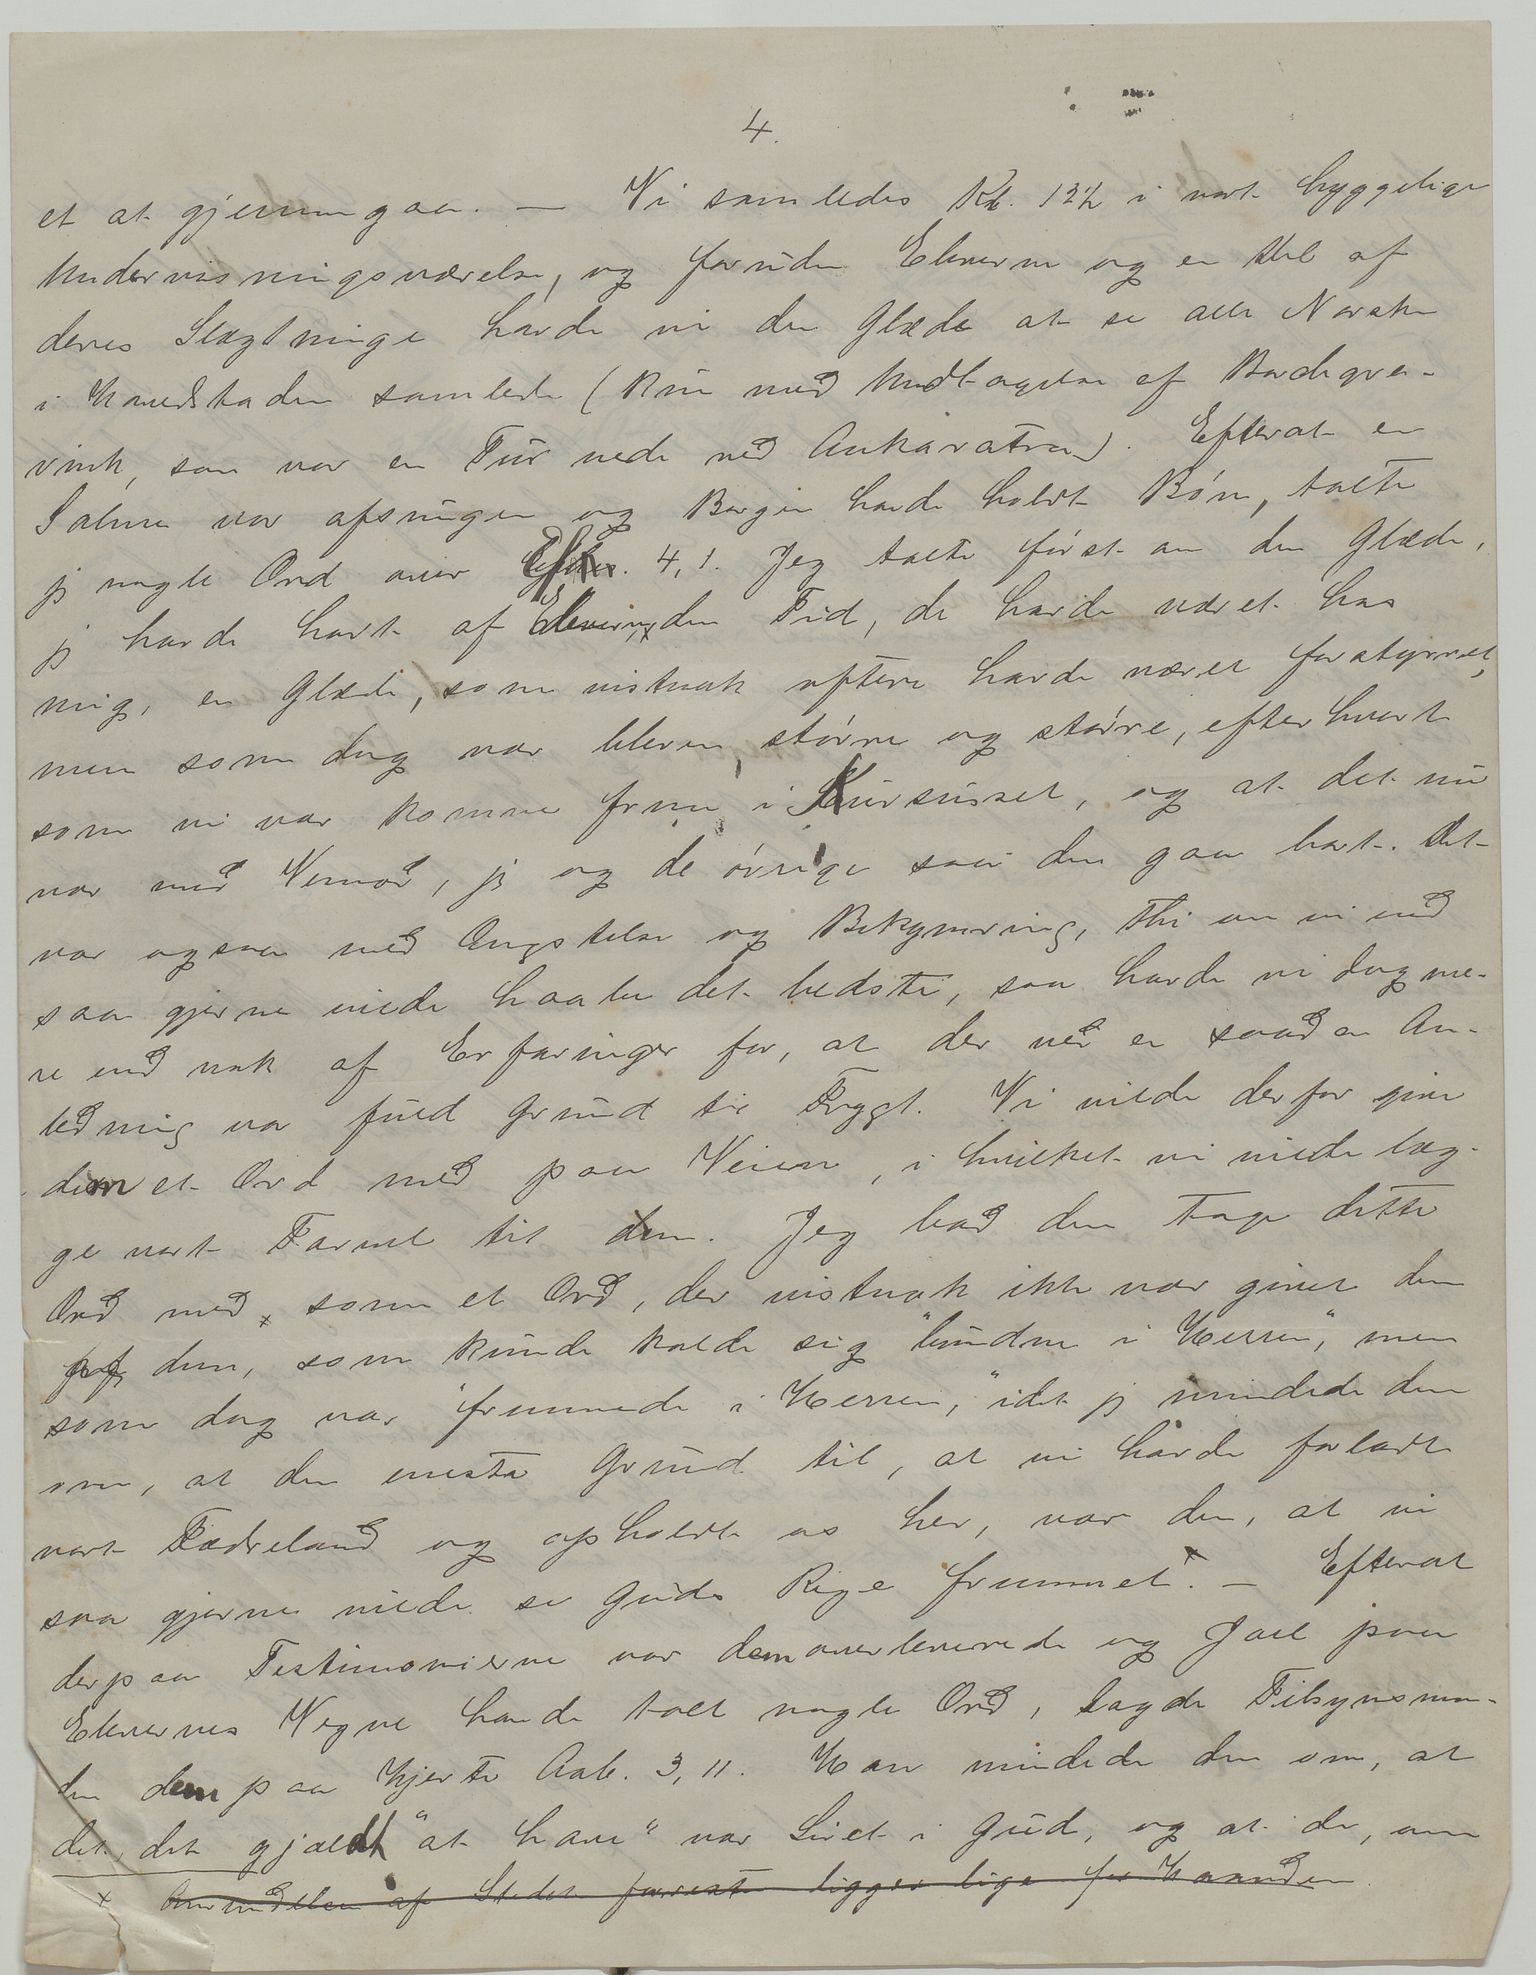 4.
et at gjennemgaa. — Vi samledes Kl. 12½ i vort hyggelige
Undervisningsværelse, og foruden Eleverne og en Del af
deres Slægtninge havde vi den Glæde at se alle Norske
i Hovedstaden samlede (kun med Undtagelse af Bordegre-
vink, som var en Tur nede ved Ankaratra). Efterat en
Salme var afsungen og Borgen havde holdt Bøn, talte
jeg nogle Ord over Efes. 4,1. Jeg talte først om den Glæde,
jeg havde havt af Eleverne, den Tid, de havde været hos
mig, en Glæde, som vistnok oftere havde været forstyrret,
men som dog var bleven større og større, efterhvert
som vi var komne frem i Kursuset, og at det nu
var med Vemod, jeg og de øvrige saa dem gaa bort. Det
var ogsaa med Ængstelse og Bekymring, thi om vi end
saa gjerne vilde haabe det bedste, saa havde vi dog me-
re end nok af Erfaringer for, at der ved en saadan An-
ledning var fuld Grund til Frygt. Vi vilde derfor give
dem et Ord med paa Veien, i hvilket vi vilde læg-
ge vort Farvel til dem. Jeg bad dem tage dette
Ord med x som et Ord, der vistnok ikke var givet dem
af dem, som kunde kalde sig "bundne i Herren", men
som dog var "fremmede i Herren," idet jeg mindede dem
om, at den eneste Grund til, at vi havde forladt
vort Fædreland og opholdt os her, var den, at vi
saa gjerne vilde se Guds Rige fremmet. — Efterat
derpaa Testimonierne var dem overleverede og Joel paa
Elevernes Vegne havde talt nogle Ord, lagde Tilsynsman-
den dem paa Hjerte Aab. 3,11. Han mindede dem om, at
det, det gjældt "at have" var Livet i Gud, og at de, om
x Anvendelsen af Stedet forresten ligger lige for Haanden.